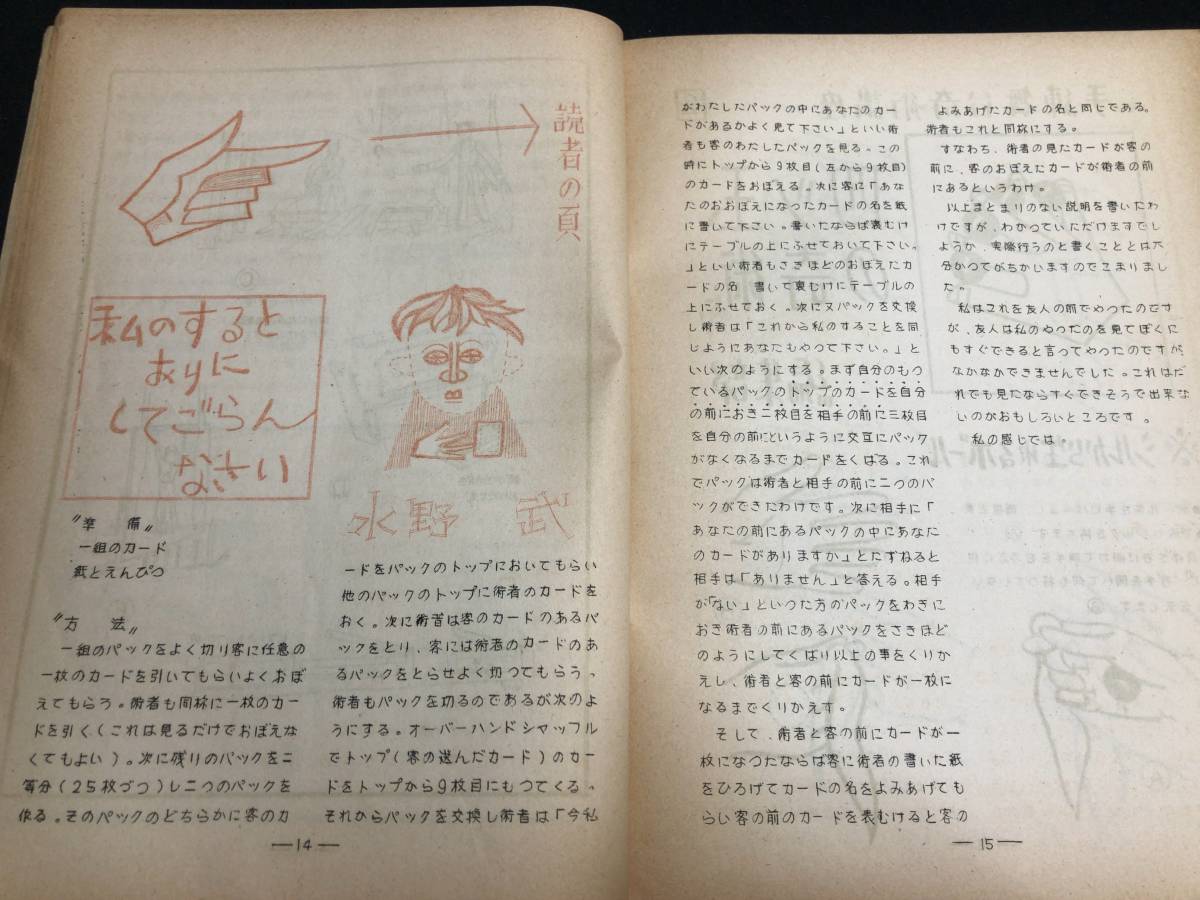 読者の頁
私のすると
おりに
してごらん
なさい
水野 武
〃準 備〃
一組のカード
紙とえんぴつ
〃方 法〃
一組のパックをよく切り客に任意の
一枚のカードを引いてもらいよくおぼ
えてもらろ。術者も同様に一枚のカー
ドを引く(これは見るだけでおぼえな
くてもよい)。次に残りのパックを二
等分(25枚づつ)し二つのパックを
作る。そのパックのどちらかに客のカ
ードをパックのトップにおいてもらい
他のパックのトップに術者のカードを
おく。次に術者は客のカードのあるパ
ックをとり、客には術者のカードのあ
るパックをとらせよく切つてもらう。
術者もパックを切るのであるが次のよ
うにする。オーバーハンドシャッフル
でトップ(客の選んだカード)のカー
ドをトップから9枚目にもつてくる。
それからパックを交換し術者は「今私
―14―
がわたしたパックの中にあなたのカー
ドがあるかよく見て下さい」といい術
者も客のわたしたパックを見る。この
時にトップから9枚目(左から9枚目)
のカードをおぼえる。次に客に「あな
たのおおぼえになつたカードの名を紙
に書いて下さい。書いたならば裏むけ
にテーブルの上にふせておいて下さい。
」といい術者もさきほどのおぼえたカ
ードの名 書いて裏むけにテーブルの
上にふせておく。次に又パックを交換
し術者は「これから私のすることを同
じようにあなたもやつて下さい。」と
いい次のようにする。まず自分のもつ
ているパックのトップのカードを自分
の前におき二枚目を相手の前に三枚目
を自分の前にというように交互にパック
がなくなるまでカードをくばる。これ
でパックは術者と相手の前に二つのパ
ックができたわけです。次に相手に「
あなたの前にあるパックの中にあなた
のカードがありますか」とたずねると
相手は「ありません」と答える。相手
が「ない」といつた方のパックをわきに
おき術者の前にあるパックをさきほど
のようにしてくばり以上の事をくりか
えし、術者と客の前にカードが一枚に
なるまでくりかえす。
そして、術者と客の前にカードが一
枚になつたならば客に術者の書いた紙
をひろげてカードの名をよみあげても
らい客の前のカードを表むけると客の
よみあげたカードの名と同じである。
術者もこれと同様にする。
すなわち、術者の見たカードが客の
前に、客のおぼえたカードが術者の前
にあるというわけ。
以上まとまりのない説明を書いたわ
けですが、わかつていただけますでし
ようか、実際行うのと書くこととは大
分かつてがちがいますのでこまりまし
た。
私はこれを友人の前でやつたのです
が、友人は私のやつたのを見てぼくに
もすぐできると言つてやつたのですが
なかなかできませんでした。これはだ
れでも見たならすぐできそうで出来な
いのがおもしろいところです。
私の感じでは
―15―